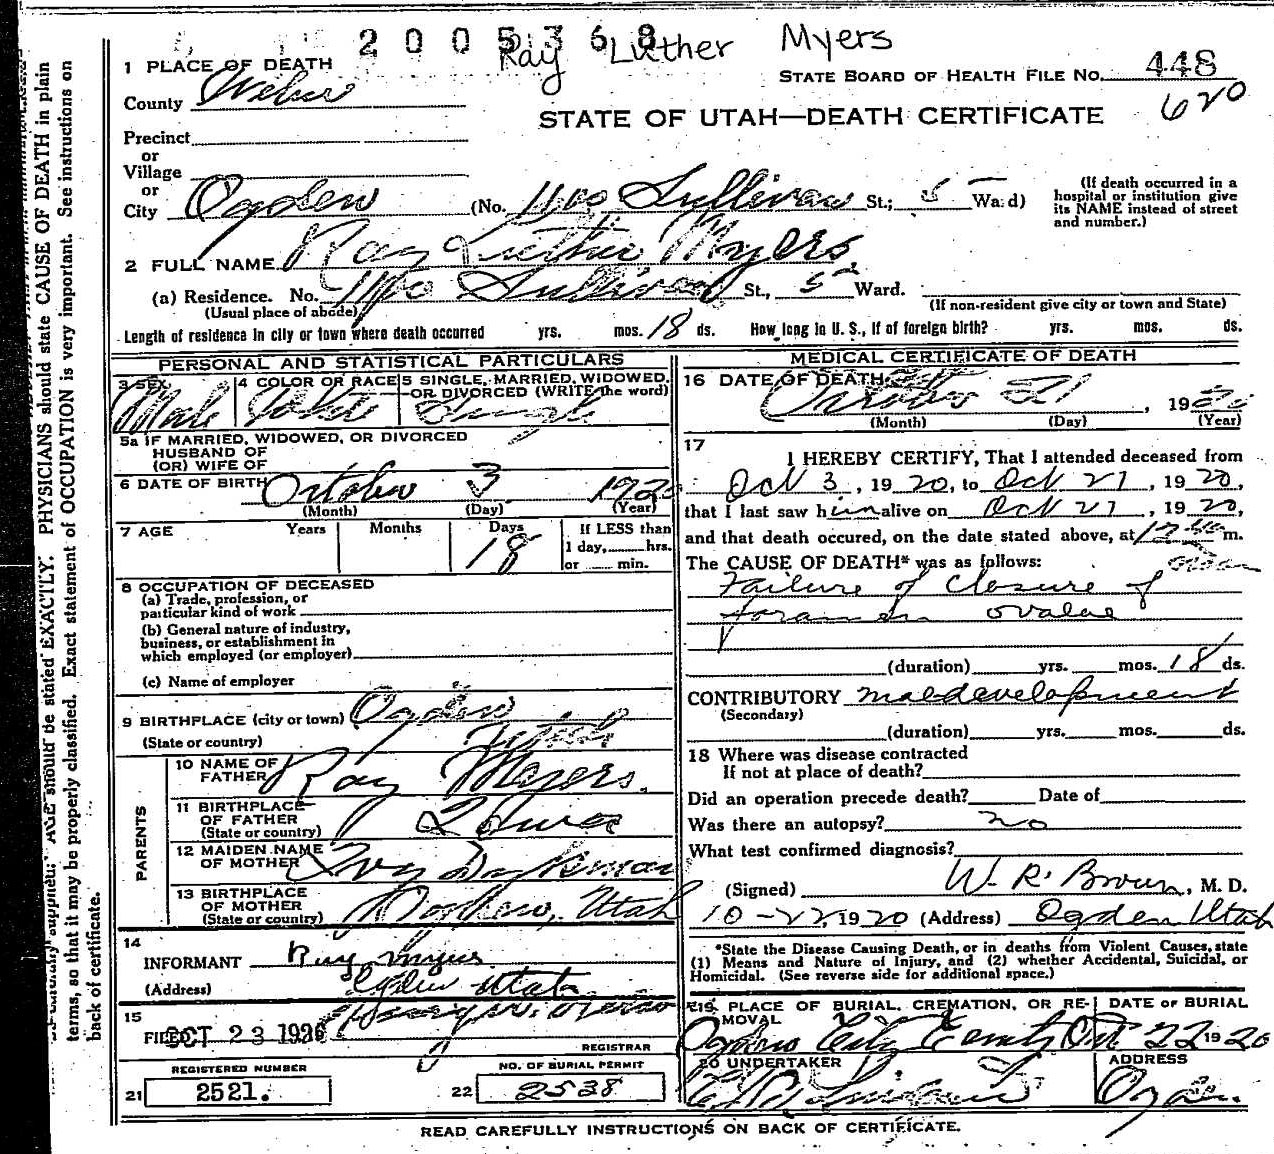 2005368
Ray Luther Myers
1 PLACE OF DEATH
STATE BOARD OF HEALTH FILE NO. 448
620
County Weber
STATE OF UTAH—DEATH CERTIFICATE
Precinct
or
Village
or
City Ogden (No. Sullivan St.; 5 Ward)
(If death occurred in a hospital or institution give its NAME instead of street and number.)
2 FULL NAME Ray Luther Myers
(a) Residence. No. Sullivan St., 5 Ward.
(Usual place of abode) (If non-resident give city or town and State)
Length of residence in city or town where death occurred yrs. mos. 18 ds. How long in U. S., if of foreign birth? yrs. mos. ds.
PERSONAL AND STATISTICAL PARTICULARS
3 SEX Male
4 COLOR OR RACE White
5 SINGLE, MARRIED, WIDOWED, OR DIVORCED (WRITE the word) Single
5a IF MARRIED, WIDOWED, OR DIVORCED
HUSBAND OF
(OR) WIFE OF
6 DATE OF BIRTH October 3 1920
(Month) (Day) (Year)
7 AGE Years Months Days 18 If LESS than
1 day, hrs.
or min.
8 OCCUPATION OF DECEASED
(a) Trade, profession, or
particular kind of work
(b) General nature of industry,
business, or establishment in
which employed (or employer)
(c) Name of employer
9 BIRTHPLACE (city or town) Ogden
(State or country) Utah
PARENTS
10 NAME OF FATHER Ray Myers.
11 BIRTHPLACE OF FATHER
(State or country)
12 MAIDEN NAME OF MOTHER Ivy
13 BIRTHPLACE OF MOTHER
(State or country) Ogden, Utah
14
INFORMANT Ray Myers
(Address) Ogden Utah
15
FILED OCT 23 1920
REGISTRAR
REGISTERED NUMBER
21 2521.
NO. OF BURIAL PERMIT
22 2538
MEDICAL CERTIFICATE OF DEATH
16 DATE OF DEATH October 21, 1920
(Month) (Day) (Year)
17
I HEREBY CERTIFY, That I attended deceased from
Oct 3, 1920, to Oct 21, 1920,
that I last saw him alive on Oct 21, 1920,
and that death occured, on the date stated above, at m.
The CAUSE OF DEATH* was as follows:
Failure of closure of
foramen ovalae
(duration) yrs. mos. 18 ds.
CONTRIBUTORY maldevelopment
(Secondary)
(duration) yrs. mos. ds.
18 Where was disease contracted
If not at place of death?
Did an operation precede death? Date of
Was there an autopsy? no
What test confirmed diagnosis?
(Signed) W. R. Brown, M. D.
10-22, 1920 (Address) Ogden Utah
*State the Disease Causing Death, or in deaths from Violent Causes, state
(1) Means and Nature of Injury, and (2) whether Accidental, Suicidal, or
Homicidal. (See reverse side for additional space.)
19 PLACE OF BURIAL, CREMATION, OR REMOVAL
Ogden City
DATE OF BURIAL
Oct 22 1920
20 UNDERTAKER
ADDRESS
Ogden.
READ CAREFULLY INSTRUCTIONS ON BACK OF CERTIFICATE.
AGE should be stated EXACTLY. PHYSICIANS should state CAUSE OF DEATH in plain
terms, so that it may be properly classified. Exact statement of OCCUPATION is very important. See instructions on
back of certificate.